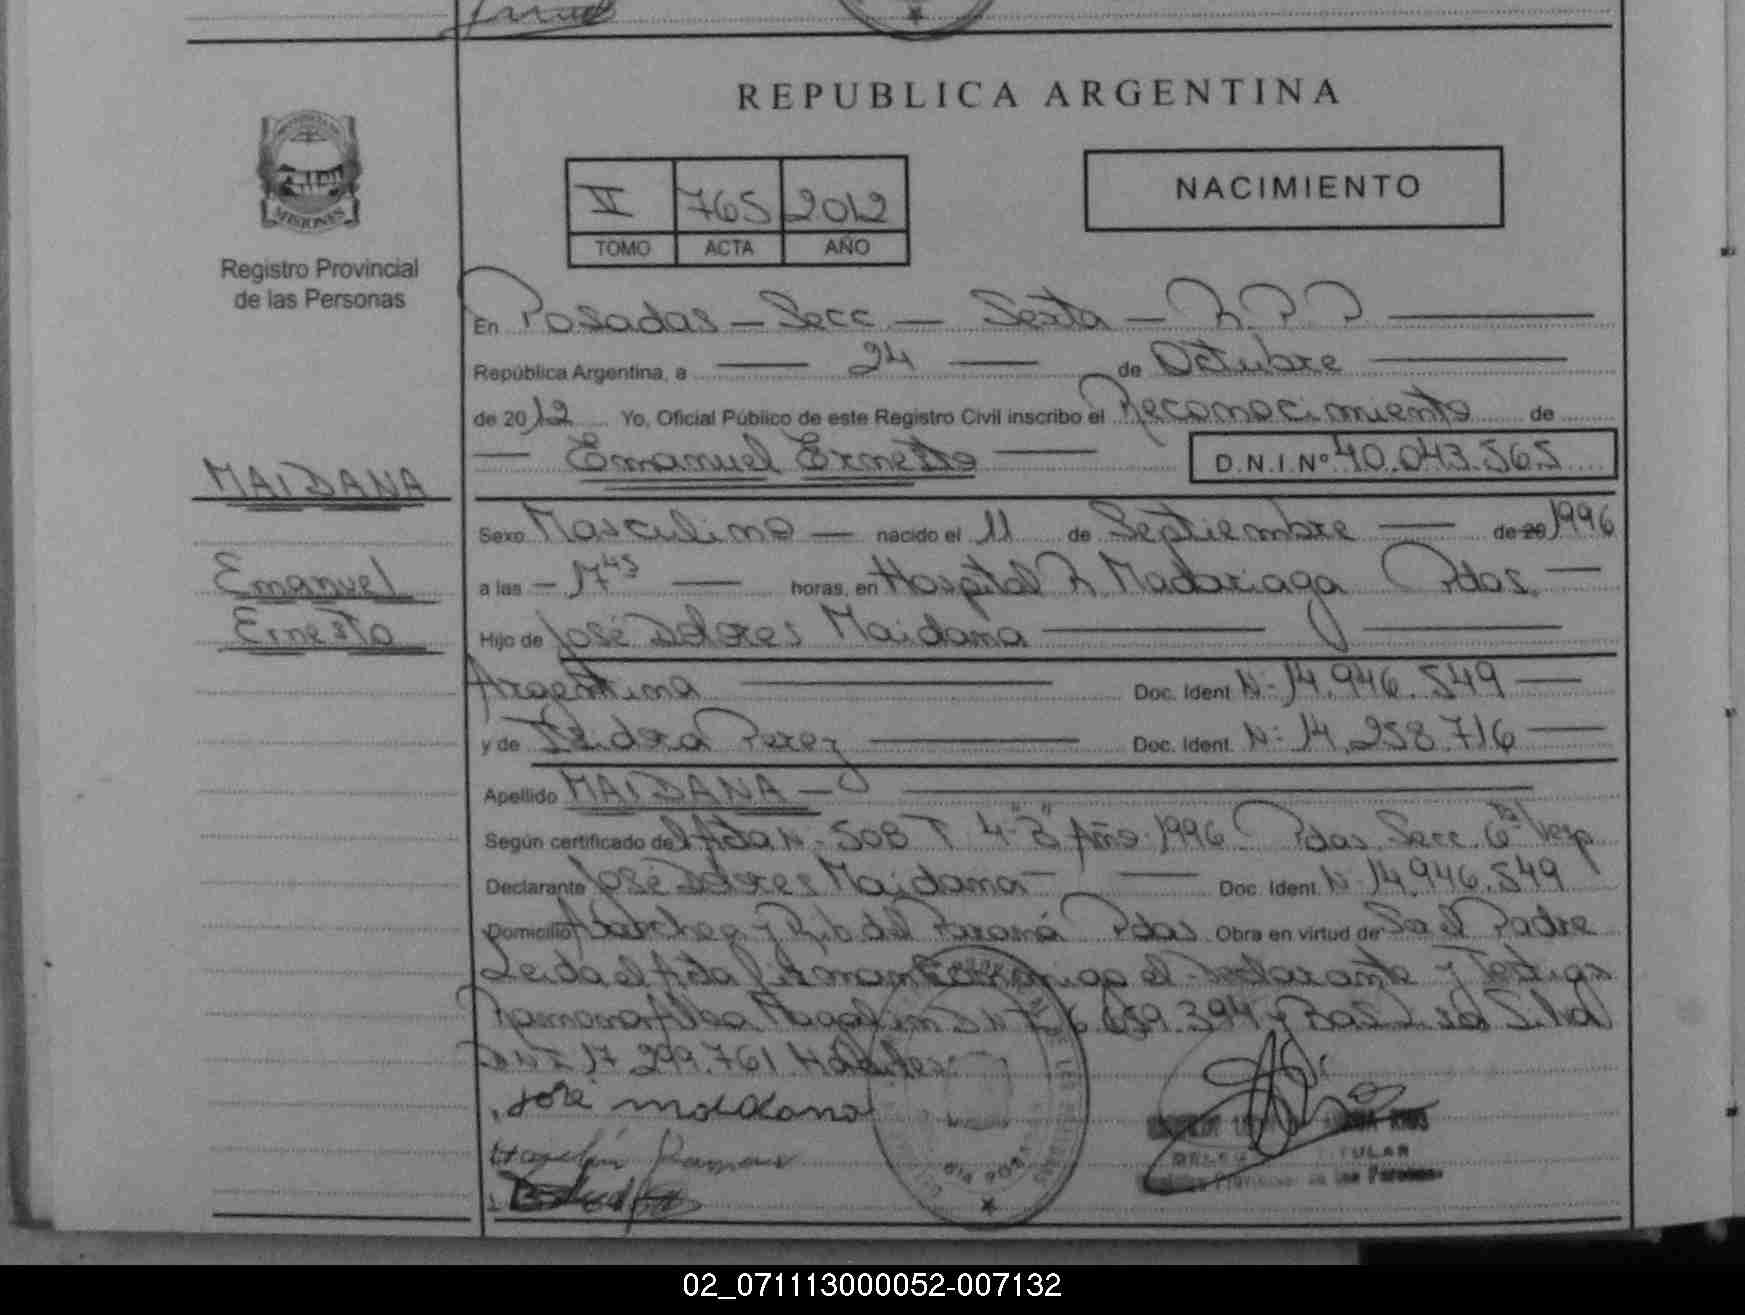 REPUBLICA ARGENTINA
V 765 2012
TOMO ACTA AÑO
NACIMIENTO
MISIONES
Registro Provincial
de las Personas
En Posadas - Secc - Sexta - R.P.P
República Argentina, a 24 de Octubre
de 2012 Yo, Oficial Público de este Registro Civil inscribo el Reconocimiento de
Emanuel Ernesto D.N.I.Nº 40.043.565
MAIDANA
Emanuel
Ernesto
Sexo Masculino nacido el 11 de Septiembre de 20 1996
a las - 17 45 horas, en Hospital R. Madariaga Pdas.
Hijo de José Dolores Maidana
Argentina Doc. Ident. N- 14.946.549
y de Isidora Perez Doc. Ident. N: 14.258.716
Apellido MAIDANA -
Según certificado del Acta N- 508 T 4- "B" Año 1996 Pdas Secc. 6ta Vesp
Declarante José Dolores Maidana Doc. Ident. N- 14.946.549
Domicilio y del Paraná Pdas. Obra en virtud de Ser el Padre
Leida el Acta el Declarante y Testigos
Ramona 394 y Silva
DNI 17.299.761
José maidana
Ramona
TITULAR
de las Personas
02_071113000052-007132